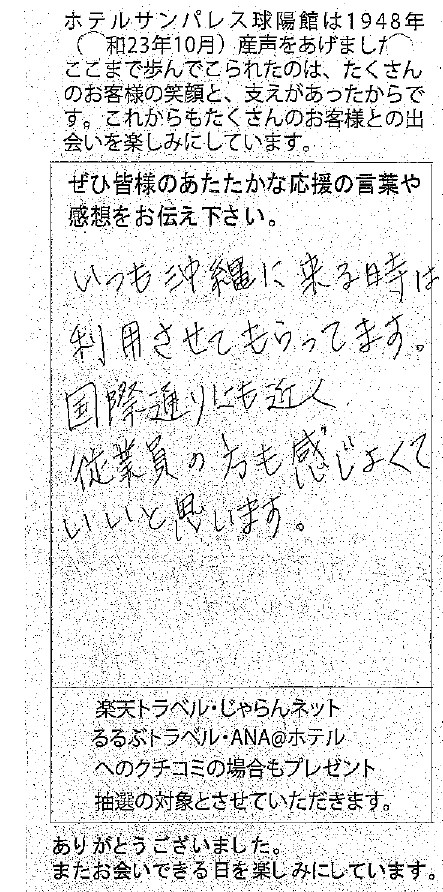 ホテルサンパレス球陽館は1948年
(和23年10月)産声をあげました
ここまで歩んでこられたのは、たくさん
のお客様の笑顔と、支えがあったからで
す。これからもたくさんのお客様との出
会いを楽しみにしています。
ぜひ皆様のあたたかな応援の言葉や
感想をお伝え下さい。
いつも沖縄に来る時は
利用させてもらってます。
国際通りにも近く
従業員の方も感じよくて
いいと思います。
楽天トラベル・じゃらんネット
るるぶトラベル・ANA@ホテル
へのクチコミの場合もプレゼント
抽選の対象とさせていただきます。
ありがとうございました。
またお会いできる日を楽しみにしています。